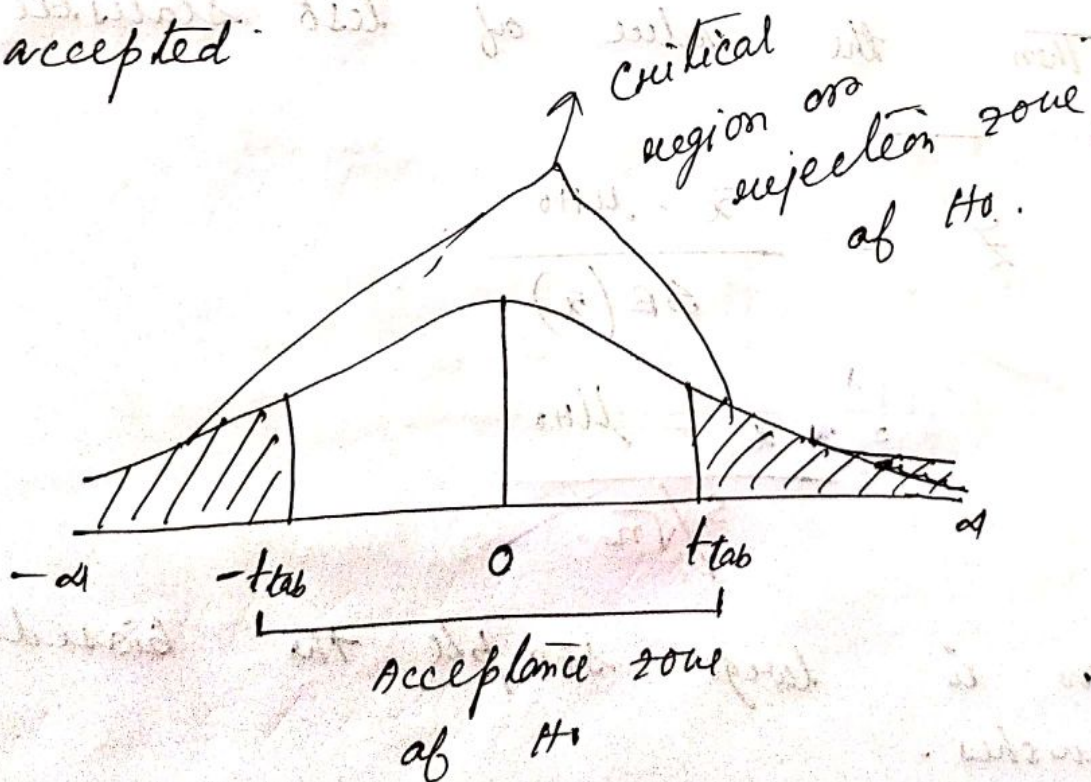 accepted.
Critical
region or
rejection zone
of H0.
-α -ttab 0 ttab α
Acceptance zone
of H0